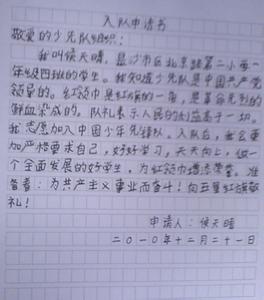 入队申请书
敬爱的少先队组织:
我叫侯天晴,是沙市区北京路第二小学一
年级四班的学生。我知道少先队是中国共产党
领导的。红领巾是红旗的一角,是革命先烈的
鲜血染成的。队礼表示人民的利益高于一切。
我志愿加入中国少年先锋队。入队后,我会更
加严格要求自己,好好学习,天天向上,做一
个全面发展的好学生,为红领巾增添荣誉。准
备着:为共产主义事业而奋斗!向五星红旗敬
礼!
申请人:侯天晴
二〇一〇年十二月二十一日